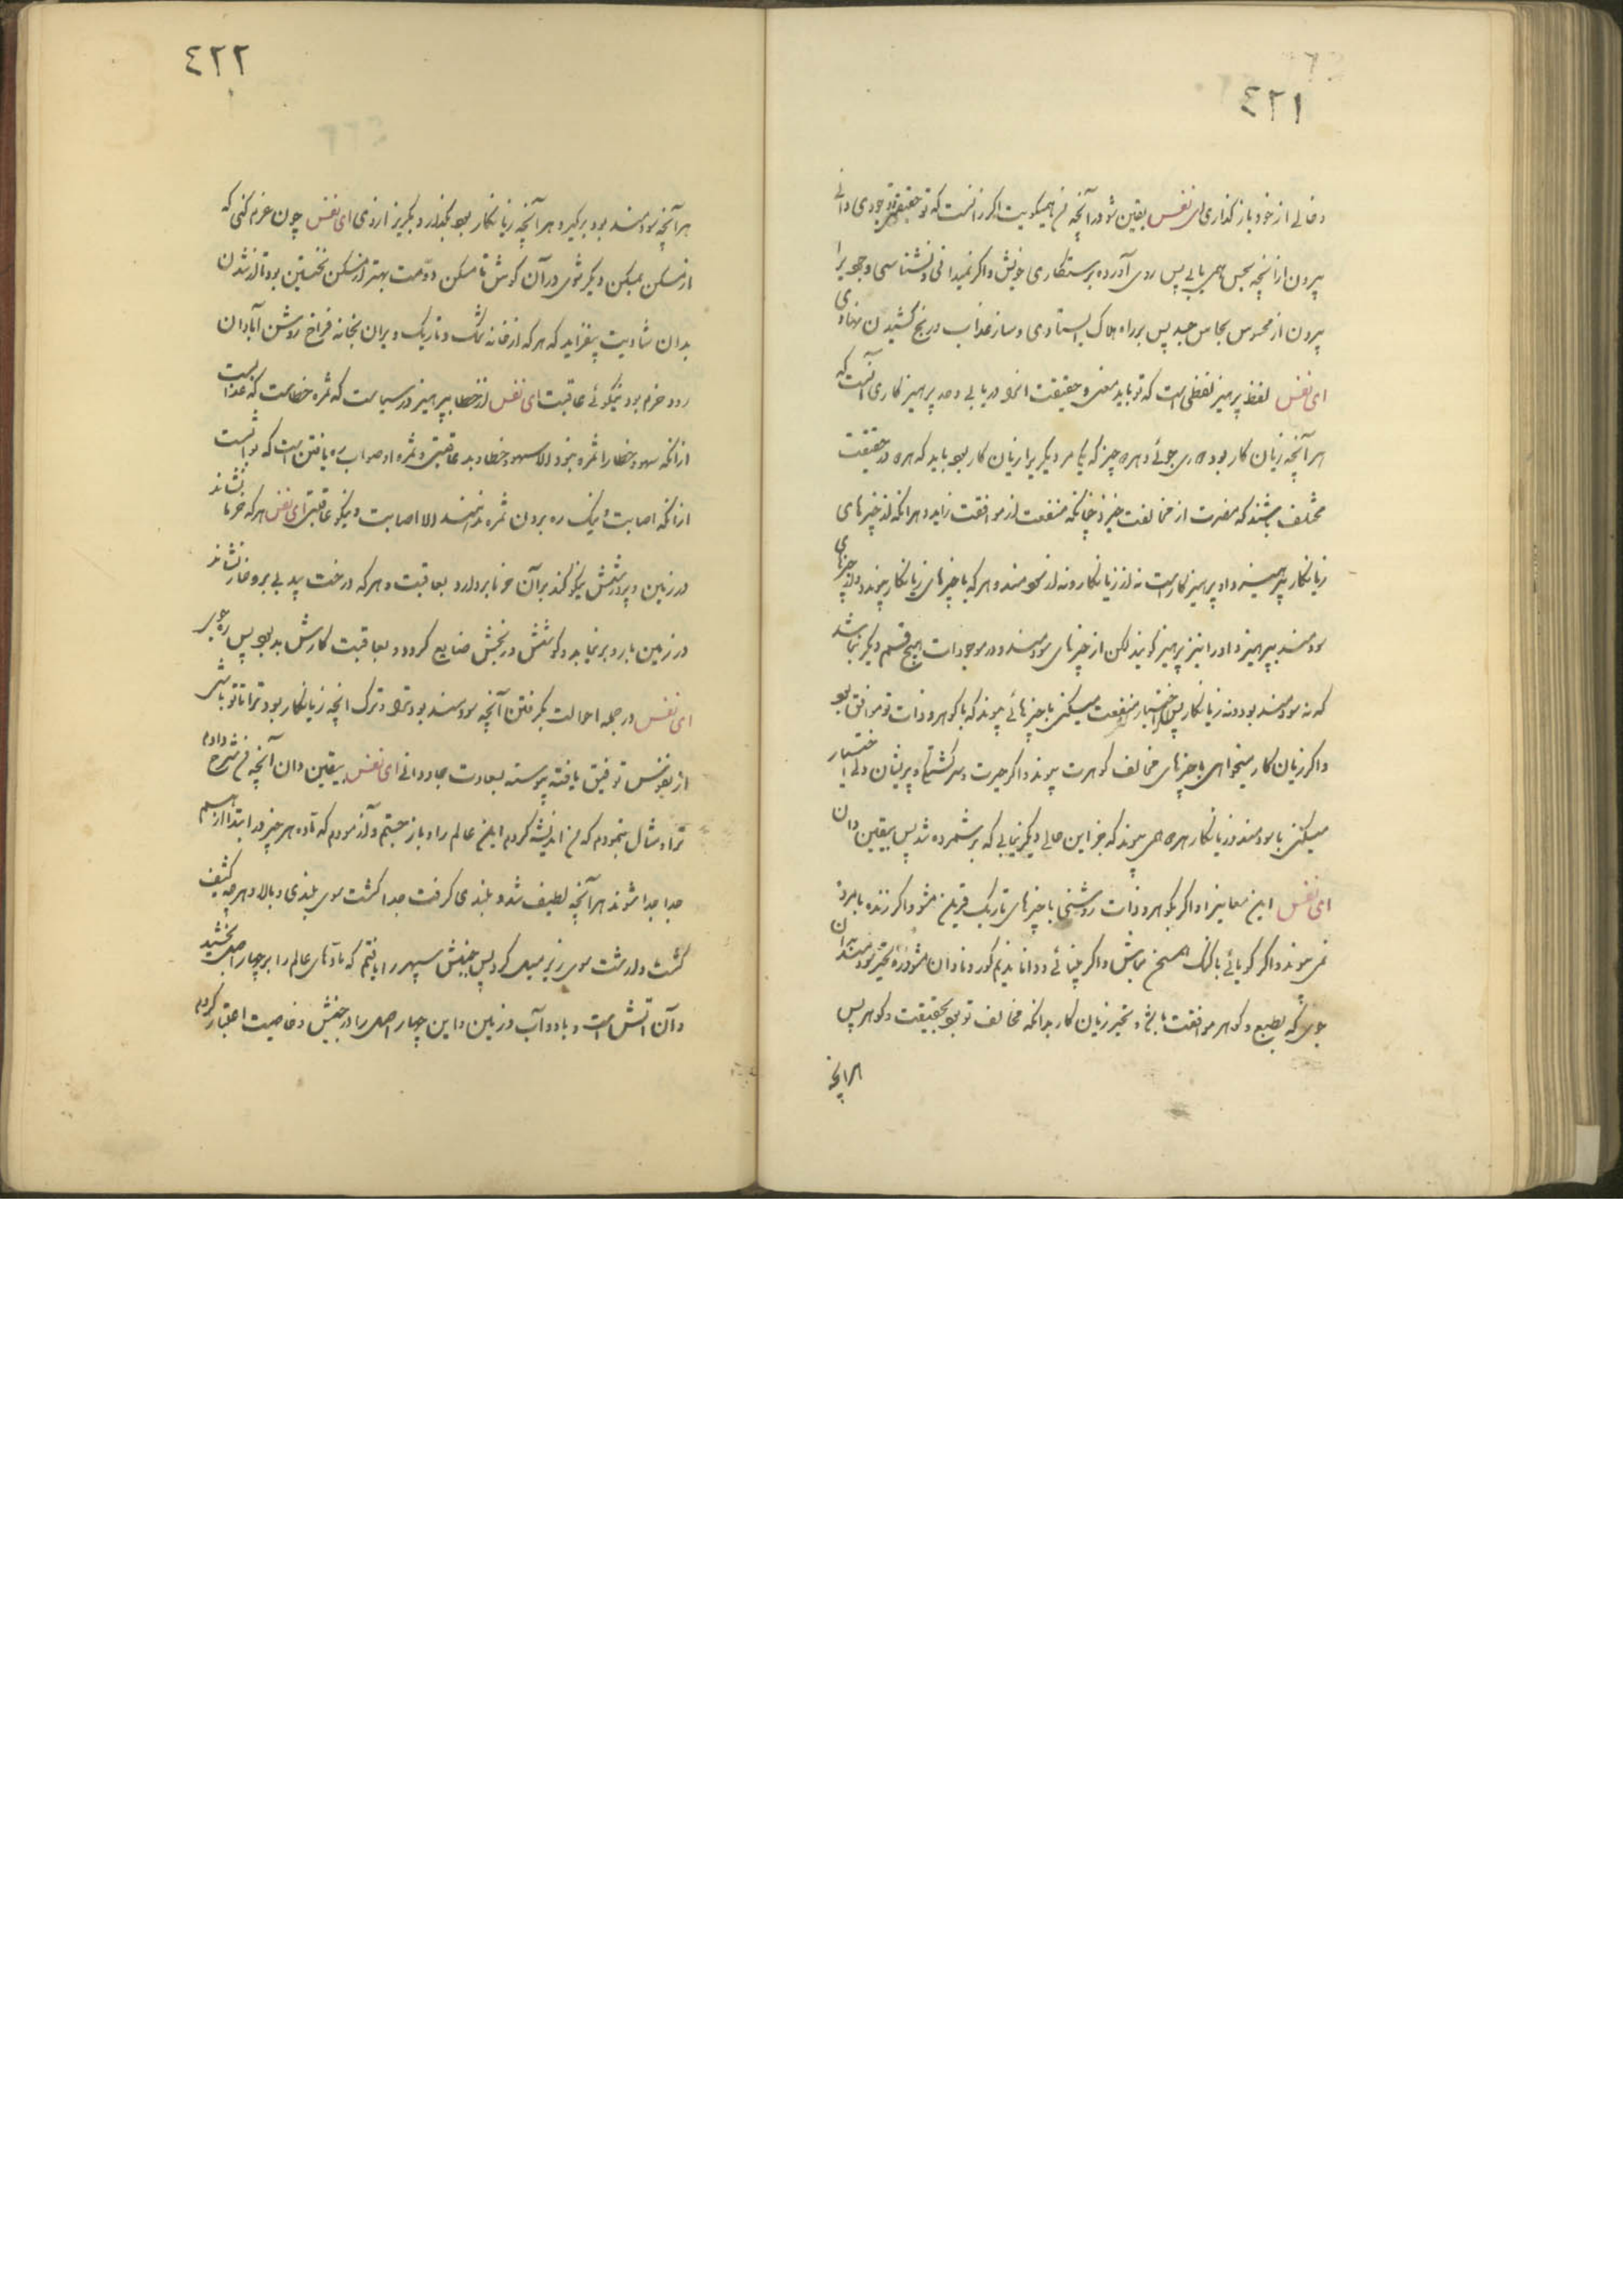 ٤٢١
و خالی از خود باز گذاری ای نفس یقین شو در آنچه من همیگویمت اگر زانست که تو حقیقت وجودی دانی
بیرون از آنچه بحس همی یابی پس روی آورده برستکاری خویش و اگر نمیدانی و نشناسی وجود را
بیرون از محسوس بحاس جسد پس بر راه هلاک ایستادی و ساز عذاب و رنج کشیدن نهادی
ای نفس لفظ پرهیز لفظی است که تو باید معنی و حقیقت انرا دریابی و حد پرهیز کاری آنست که
هر آنچه زیان کار بود دوری جوئی و هر دو چیز که یکی مر دیگری را زیان کار بود باید که هر دو در حقیقت
مختلف باشند که مضرت از مخالفت خیزد چنانکه منفعت از موافقت زاید و هر انکه از چیزهای
زیانکار بپرهیزد او پرهیز کار است نه از زیانکار و نه از سودمند و هر که با چیزهای زیانکار پیوندد و از چیزهای
سودمند بپرهیزد او را نیز پرهیز گویند لکن از چیزهای سودمند و در موجودات هیچ قسم دیگر نباشد
که نه سودمند بود و نه زیانکار پس اگر اختیار منفعت میکنی با چیزهائی پیوند که با گوهر و ذات تو موافق بود
و اگر زیان کار میخواهی با چیزهای مخالف گوهرت پیوند و اگر حیرت و سرگشتگی و پریشان دلی اختیار
میکنی با سودمند و زیانکار هر دو همی پیوند که جز این حالی دیگر نیابی که بر شمرده شد پس بیقین دان
ای نفس این معانیرا و اگر بگوهر و ذات روشنی با چیزهای تاریک قرین مشو و اگر زنده با مرده
نمی پیوند و اگر گویائی با گنگ همسخن مباش و اگر بینائی و دانا ندیم کور و نادان مشو و نزد بخیر سودمند آن
جوی که بطبع و گوهر موافقت باشد و بخیر زیان کار بدانکه مخالف تو بود بحقیقت و گوهر پس
هر آنچه
٤٢٢
هر آنچه سودمند بود بر گیر و هر آنچه زیانکار بود بگذار و بگریز از وی ای نفس چون عزم کنی که
از مسکن بمسکن دیگر شوی در آن کوش تا مسکن دومت بهتر از مسکن نخستین بود تا از شدن
بدان شادیت بیفزاید که هر که از خانه تنگ و تاریک و ویران بخانه فراخ روشن آبادان
رود خرم بود بنیکوئی عاقبت ای نفس از خطا بپرهیز و ترسیاست که ثمره خطاست که عذابست
از انکه سهو و خطا را ثمره نبود الا سهو و خطا و بد عاقبتی و ثمره او صواب ره یافتن است که ثوابست
از انکه اصابت و نیک ره بردن ثمره ندهند الا اصابت و نیکو عاقبتی ای نفس هر که خرما نشاند
در زمین و پرورشش نیکو کند بر آن خرما بردارد بعاقبت و هر که درخت بید بی بر و خار نشاند
در زمین بار و بر نیابد و کوشش و رنجش ضایع گردد و بعاقبت کارش بد بود پس ره جوی
ای نفس در جمله احوالت بگرفتن آنچه سودمند بود ترا و ترک انچه زیانکار بود ترا تا تو باشی
از نفوس توفیق یافته پیوسته بسعادت جاودانی ای نفس بیقین دان آنچه من شرح دادم
ترا و مثال بنمودم که من اندیشه کردم این عالم را و باز جستم و آزمودم که ماده هر چیز در ابتدا از هم
جدا جدا شوند هر آنچه لطیف شد و بلندی گرفت جدا گشت سوی بلندی و بالا و هر چه کثیف
گشت و درشت سوی زیر میل کرد پس جنبش سپهر را یافتم که مادهای عالم را بر چهار اصل بخشید
و آن اتش است و باد و آب و زمین و این چهار اصل را در جنبش و خاصیت اعتبار کردم